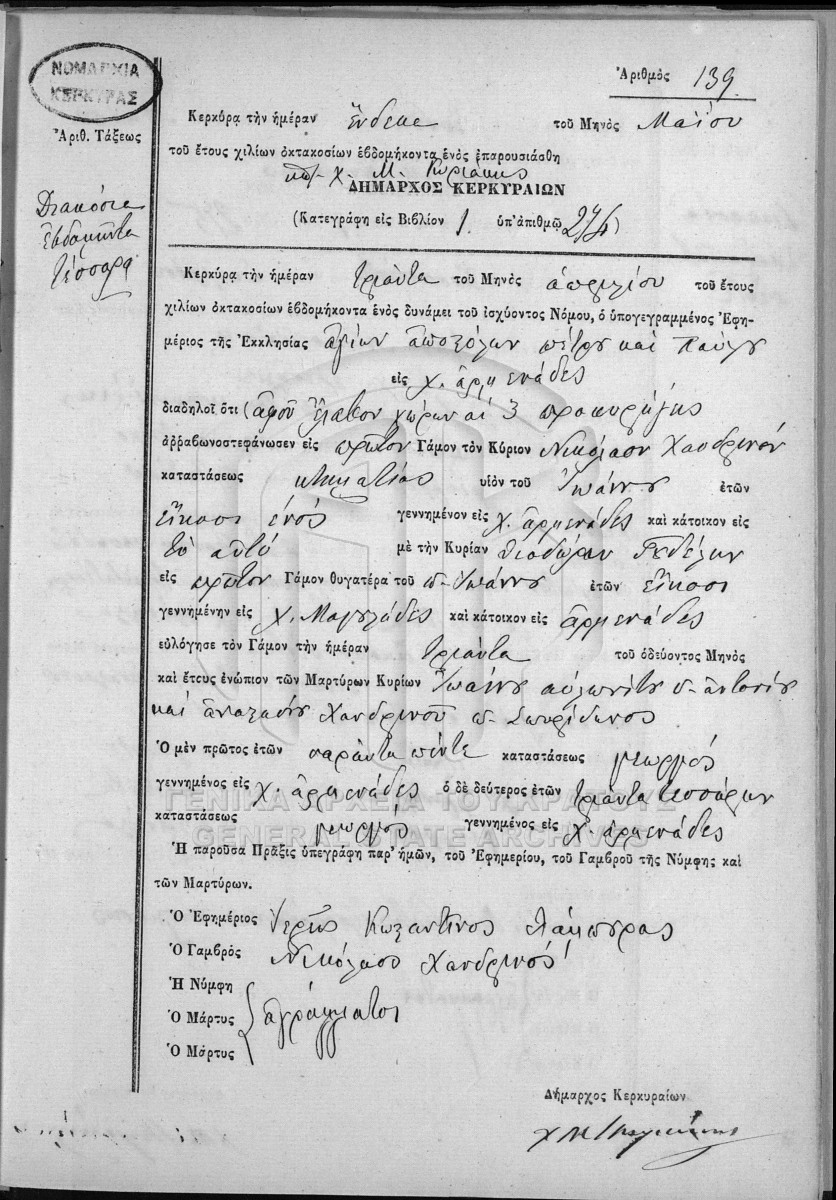 ΝΟΜΑΡΧΙΑ
ΚΕΡΚΥΡΑΣ
Ἀριθμὸς 139.
Ἀριθ. Τάξεως
Διακόσια
ἑβδομῆντα
τέσσαρα
Κερκύρᾳ τὴν ἡμέραν ἕνδεκα τοῦ Μηνὸς Μαΐου
τοῦ ἔτους χιλίων ὀκτακοσίων ἑβδομήκοντα ἑνὸς ἐπαρουσιάσθη
χ. Μ. Κυριάκης
ΔΗΜΑΡΧΟΣ ΚΕΡΚΥΡΑΙΩΝ
(Κατεγράφη εἰς Βιβλίον 1. ὑπ' ἀριθμῷ 274)
Κερκύρᾳ τὴν ἡμέραν τριάντα τοῦ Μηνὸς ἀπριλίου τοῦ ἔτους
χιλίων ὀκτακοσίων ἑβδομήκοντα ἑνὸς δυνάμει τοῦ ἰσχύοντος Νόμου, ὁ ὑπογεγραμμένος Ἐφη-
μέριος τῆς Ἐκκλησίας ἁγίων ἀποστόλων πέτρου καὶ παύλου
εἰς χ. ἀρμενάδες
διαδηλοῖ ὅτι (ἀφοῦ ἔλαβον χώραν αἱ 3 προκηρύξης
ἀρραβωνοστεφάνωσεν εἰς πρῶτον Γάμον τὸν Κύριον Νικόλαον Χανδρινόν
καταστάσεως κτηματίας υἱὸν τοῦ Ἰωάννου ἐτῶν
εἴκοσι ἑνός γεννημένον εἰς χ. ἀρμενάδες καὶ κάτοικον εἰς
τὸ αὐτό μὲ τὴν Κυρίαν θεοδώραν
εἰς πρῶτον Γάμον θυγατέρα τοῦ π. Ἰωάννου ἐτῶν εἴκοσι
γεννημένην εἰς χ. Μαγουλάδες καὶ κάτοικον εἰς ἀρμενάδες
εὐλόγησε τὸν Γάμον τὴν ἡμέραν τριάντα τοῦ ὁδεύοντος Μηνὸς
καὶ ἔτους ἐνώπιον τῶν Μαρτύρων Κυρίων Ἰωάννου αὐλωνίτου π. ἀντωνίου
καὶ ἀναστασίου Χανδρινοῦ π. Σπυρίδωνος
Ὁ μὲν πρῶτος ἐτῶν σαράντα πέντε καταστάσεως γεωργός
γεννημένος εἰς χ. ἀρμενάδες ὁ δὲ δεύτερος ἐτῶν τριάντα τεσσάρων
καταστάσεως γεωργός γεννημένος εἰς χ. ἀρμενάδες
ΓΕΝΙΚΑ ΑΡΧΕΙΑ ΤΟΥ ΚΡΑΤΟΥΣ
GENERAL STATE ARCHIVES
Ἡ παροῦσα Πρᾶξις ὑπεγράφη παρ' ἡμῶν, τοῦ Ἐφημερίου, τοῦ Γαμβροῦ τῆς Νύμφης καὶ
τῶν Μαρτύρων.
Ὁ Ἐφημέριος Ἱερεὺς Κωσταντῖνος
Ὁ Γαμβρὸς Νικόλαος Χανδρινός
Ἡ Νύμφη
Ὁ Μάρτυς ἀγράμματοι
Ὁ Μάρτυς
Δήμαρχος Κερκυραίων